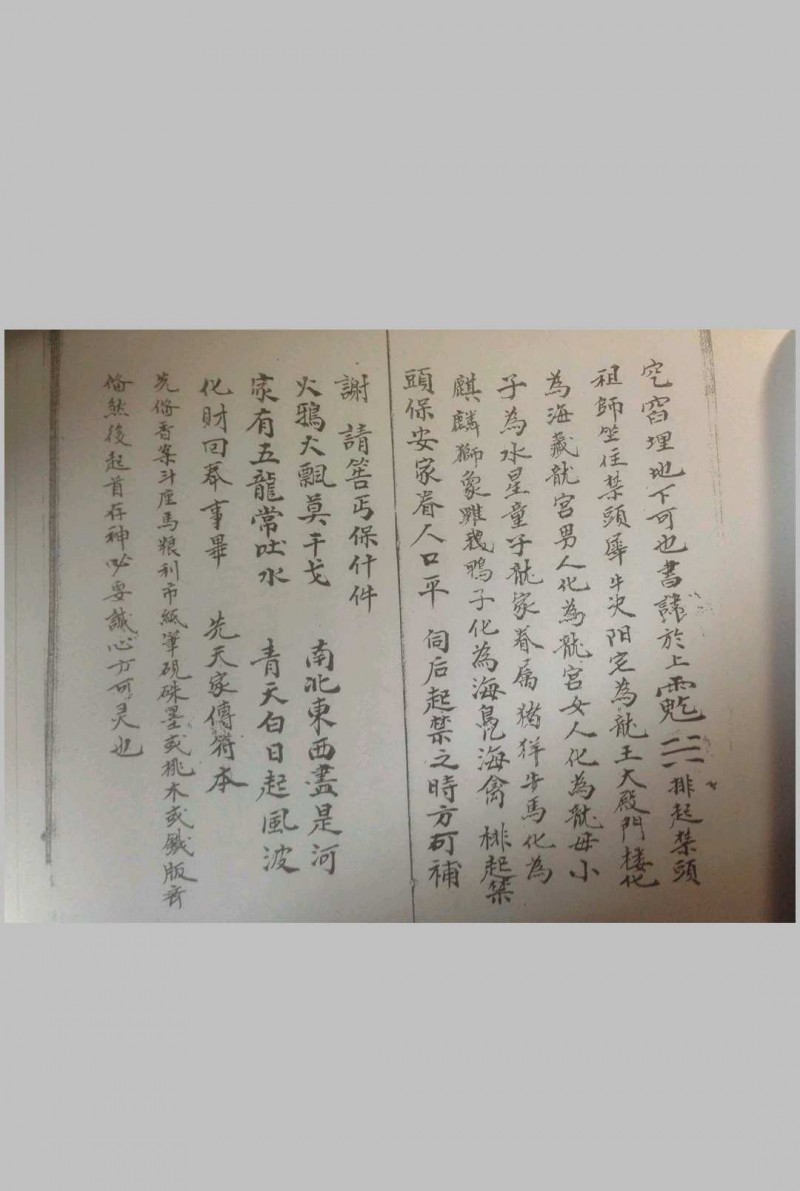 窯埋地下可也書諱於上 三 排起禁頭
祖師坐住禁頭犀牛次阳宅為龍王大殿門楼化
為海藏龍宮男人化為龍宮女人化為龍母小
子為水星童子龍家眷属猪羊牛馬化為
麒麟獅象雞鵝鴨子化為海鳥海禽 排起禁
頭保安家眷人口平 伺后起禁之時方可補
謝 請筶丐保什件
火鴉大飄莫干戈 南北東西盡是河
家有五龍常吐水 青天白日起風波
化財回奉事畢 先天家傳符本
先俻香案斗座馬粮利市紙筆硯硃墨或桃木或鉄版齊
俻然後起首存神必要誠心方可灵也